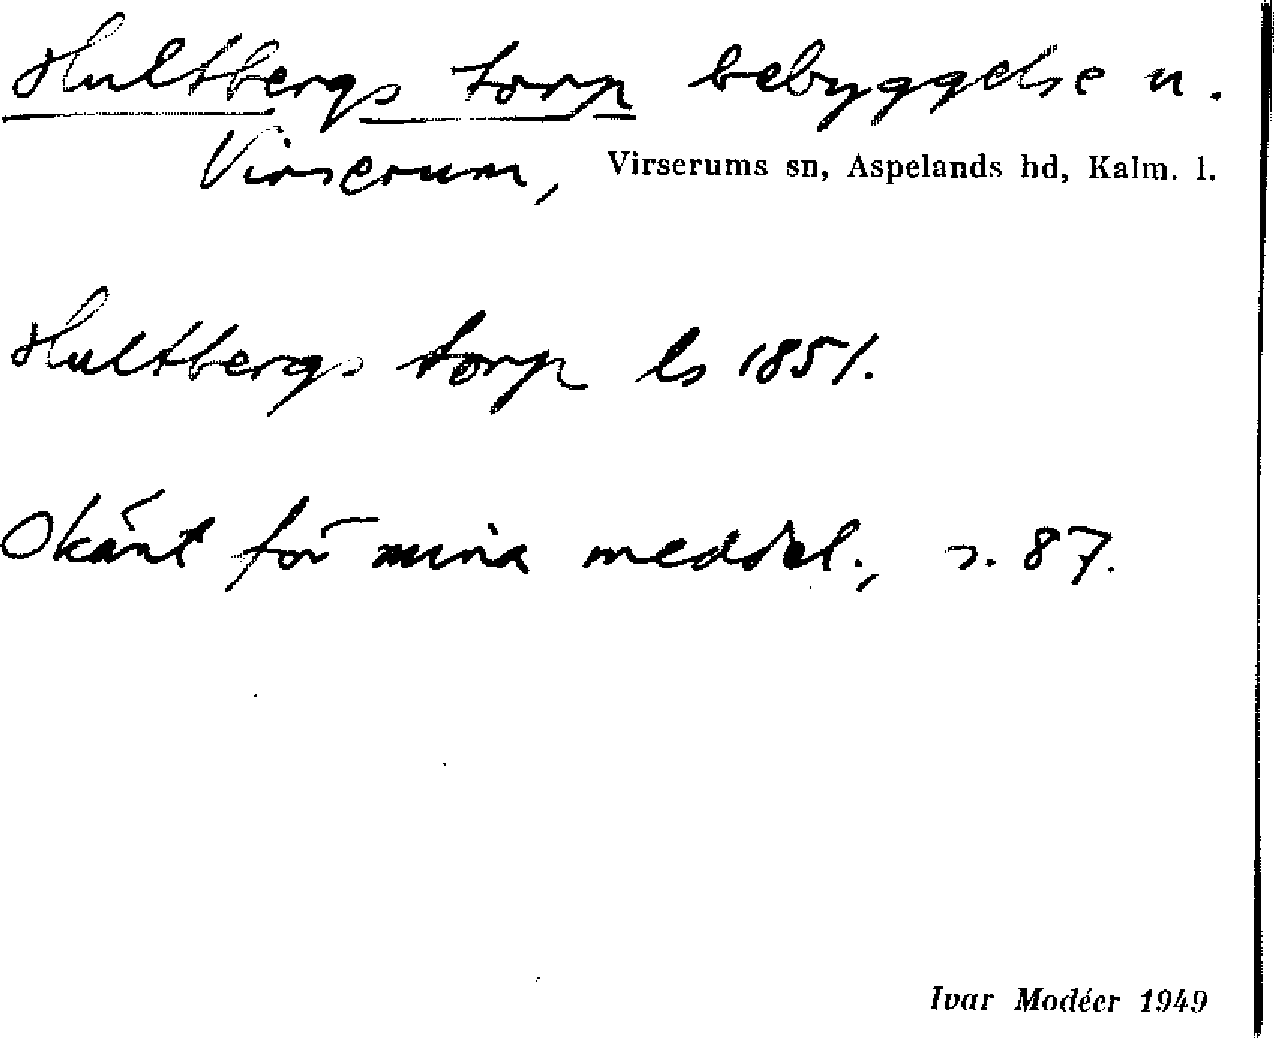 Hultbergs torp bebyggelse u.
Virserum, Virserums sn, Aspelands hd, Kalm. l.
Hultbergs torp ls 1851.
Okänt för mina meddel., s. 87.
Ivar Modéer 1949